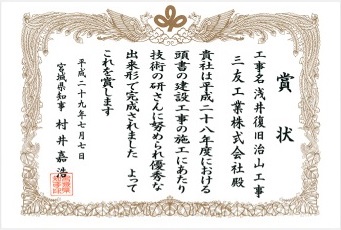 賞状
工事名 浅井復旧治山工事
三友工業株式会社殿
貴社は平成二十八年度における
頭書の建設工事の施工にあたり
技術の研さんに努められ優秀な
出来形で完成されました よって
これを賞します
平成二十九年七月七日
宮城県知事 村井嘉浩